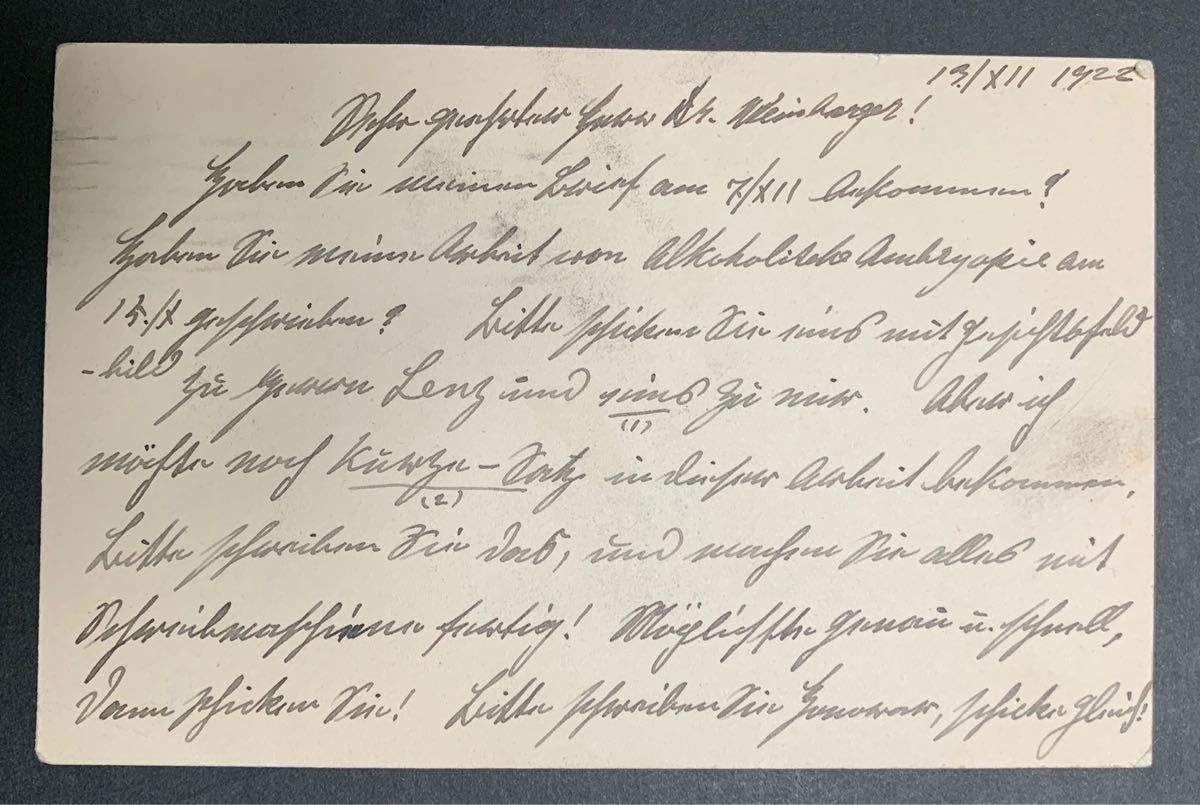 13./XII 1922
Sehr geehrter Herr Dr. Weinberger!
Haben Sie meinen Brief am 7/XII bekommen?
Haben Sie meine Arbeit von Alkoholische Amblyopie am
15./X geschrieben? Bitte schicken Sie eins mit Gesichtsfeld
-bild zu Herrn Lenz und eins zu mir. Aber ich
(1)
möchte noch Kurze-Satz in dieser Arbeit bekommen,
(2)
Bitte schreiben Sie das, und machen Sie alles mit
Schreibmaschiene fertig! Möglichste genau u. schnell,
Dann schicken Sie! Bitte schreiben Sie Honorar, schicke gleich!